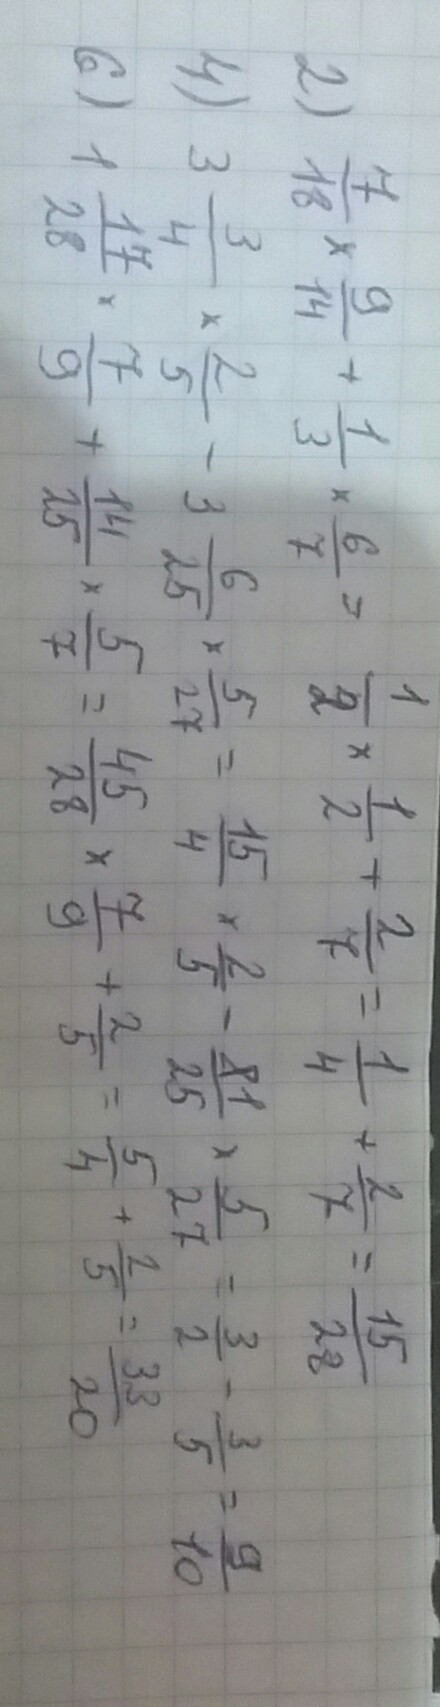 2) 7/18 × 9/14 + 1/3 × 6/7 = 1/2 × 1/2 + 2/7 = 1/4 + 2/7 = 15/28
4) 3 3/4 × 2/5 - 3 6/25 × 5/27 = 15/4 × 2/5 - 81/25 × 5/27 = 3/2 - 3/5 = 9/10
6) 1 17/28 × 7/9 + 14/25 × 5/7 = 45/28 × 7/9 + 2/5 = 5/4 + 2/5 = 33/20